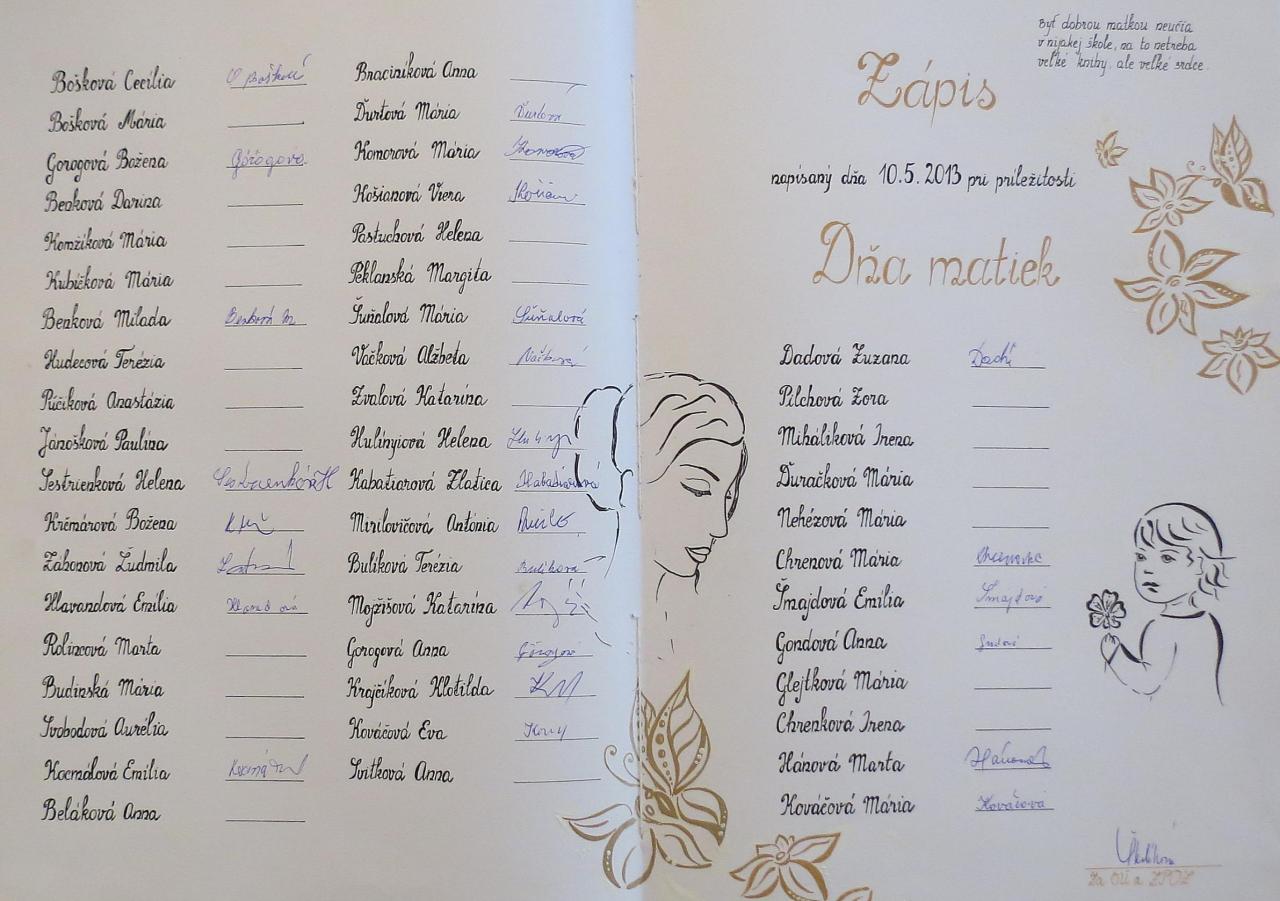 Bošková Cecília
Bošková Mária
Gorogová Božena Görögová
Benková Darina
Komžíková Mária
Kubičková Mária
Benková Milada Benková M
Hudecová Terézia
Púčiková Anastázia
Jánošková Paulína
Sestrienková Helena Sestrienková H
Krčmárová Božena
Záhonová Ľudmila
Hlavandová Emília
Rolincová Marta
Budinská Mária
Svobodová Aurélia
Kocmálová Emília
Beláková Anna
Braciníková Anna
Ďurtová Mária
Komorová Mária
Košianová Viera
Pastuchová Helena
Peklanská Margita
Šuňalová Mária Šuňalová
Vačková Alžbeta Vačková
Zvalová Katarína
Hulínyiová Helena
Kabatiarová Zlatica Kabatiarová
Mirilovičová Antónia
Bulíková Terézia Bulíková
Mojžišová Katarína
Gorogová Anna
Krajčíková Klotilda
Kováčová Eva
Svitková Anna
Byť dobrou matkou neučia
v nijakej škole, na to netreba
veľké knihy, ale veľké srdce.
Zápis
napísaný dňa 10.5.2013 pri príležitosti
Dňa matiek
Dadová Zuzana
Pilchová Zora
Miháliková Irena
Ďuračková Mária
Nehézová Mária
Chrenová Mária
Šmajdová Emília Šmajdová
Gondová Anna
Glejtková Mária
Chrenková Irena
Hánová Marta
Kováčová Mária Kováčová
Za OÚ a ZPOZ